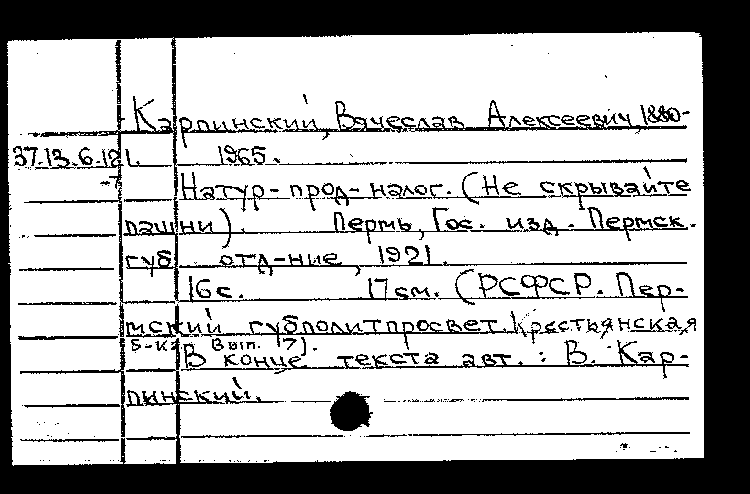 Карпинский, Вячеслав Алексеевич, 1880-
37.13.6.121. 1965.
-7 Натур-прод-налог. (Не скрывайте
пашни). Пермь, Гос. изд. Пермск.
губ. отд-ние, 1921.
16с. 17см. (РСФСР. Пер-
мский губполитпросвет. Крестьянская
б-ка Вып. 7).
В конце текста авт.: В. Кар-
пинский.